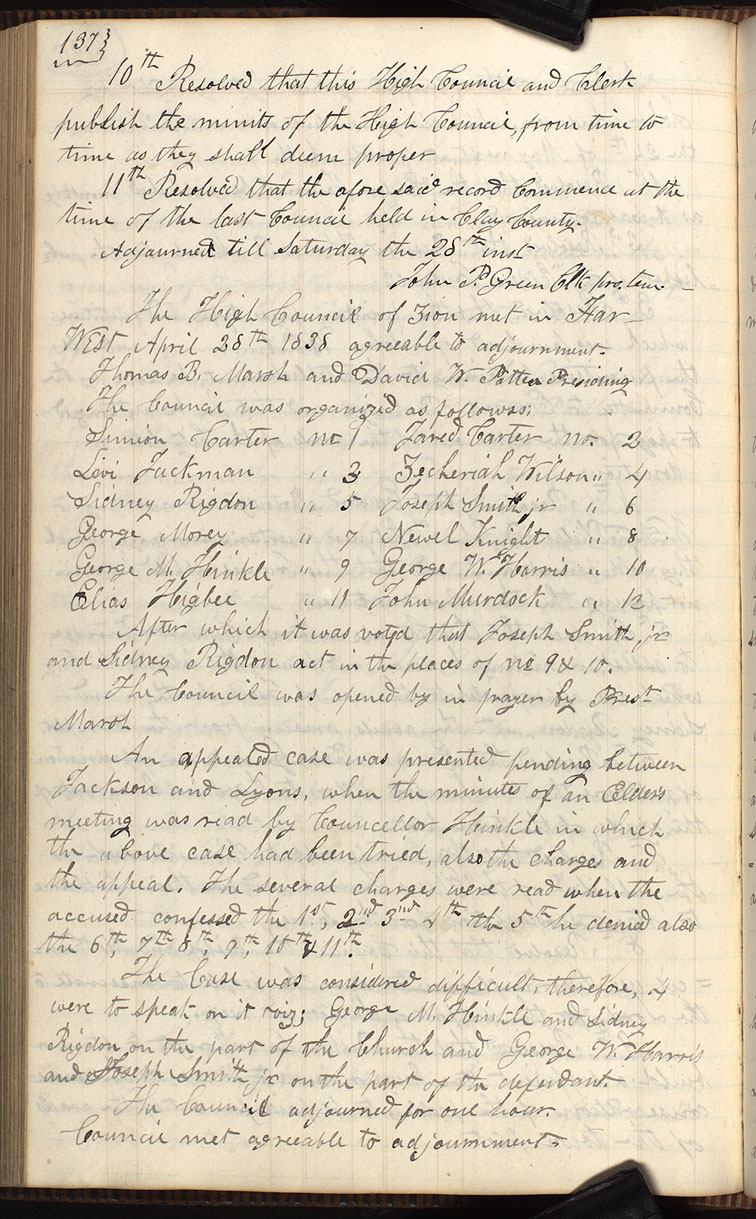 137
10th Resolved that this High Council and Clerk
publish the minits of the High Council, from time to
time as they shall deem proper
11th Resolved that the afore said record commence at the
time of the last Council held in Clay County.
Adjourned till Saturday the 28th inst
John P. Green Clk pro. tem. —
The High Council of Zion met in Far
West, April 28th 1838 agreeable to adjournment.
Thomas B. Marsh and David W. Patten Presiding
The Council was organized as follows:
Simion Carter no 1 Jared Carter no. 2
Levi Jackman " 3 Zecheriah Wilson " 4
Sidney Rigdon " 5 Joseph Smith jr " 6
George Morey " 7 Newel Knight " 8
George M. Hinkle " 9 George W. Harris " 10
Elias Higbee " 11 John Murdock " 12
After which it was voted that Joseph Smith jr
and Sidney Rigdon act in the places of no 9 & 10.
The Council was opened by in prayer by Prest
Marsh
An appealed case was presented pending between
Jackson and Lyons, when the minutes of an Elders
meeting was read by Councellor Hinkle in which
the above case had been tried, also the charges and
the appeal. The several charges were read when the
accused confessed the 1st, 2nd 3rd 4th the 5th he denied also
the 6th, 7th 8th, 9th, 10th & 11th.
The Case was considered difficult, therefore, 4
were to speak on it viz; George M. Hinkle and Sidney
Rigdon on the part of the Church and George W. Harris
and Joseph Smith jr on the part of the defendant.
The Council adjourned for one hour.
Council met agreeable to adjournment.